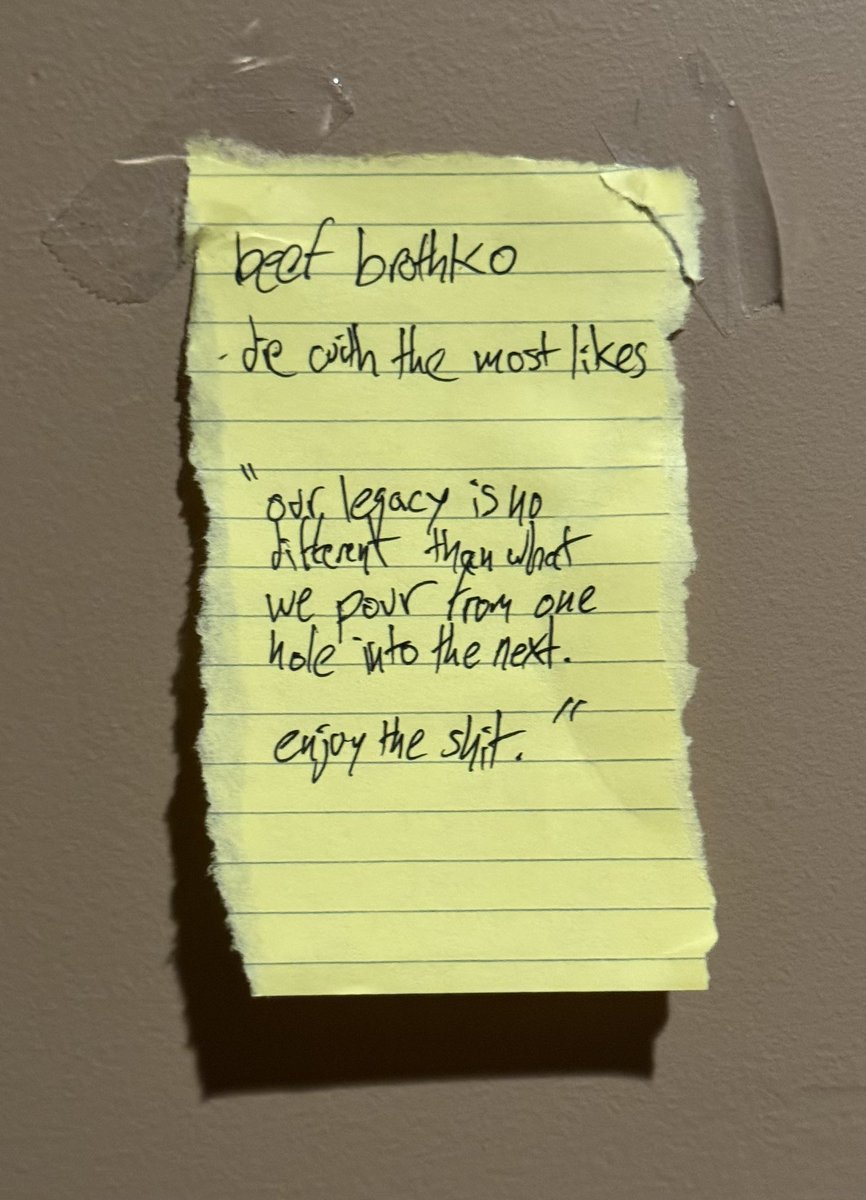 beef brothko
- de with the most likes
"our legacy is no
different than what
we pour from one
hole into the next.
enjoy the shit."